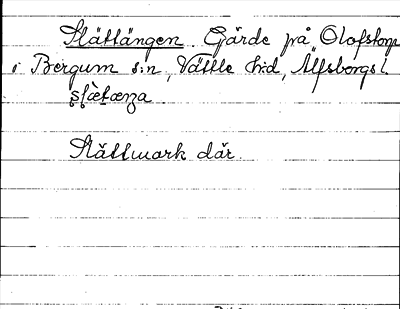 Slättängen. Gärde på Olofstorp
i Bergum s:n, Vättle h:d, Älfsborgs l.
Slättmark där.